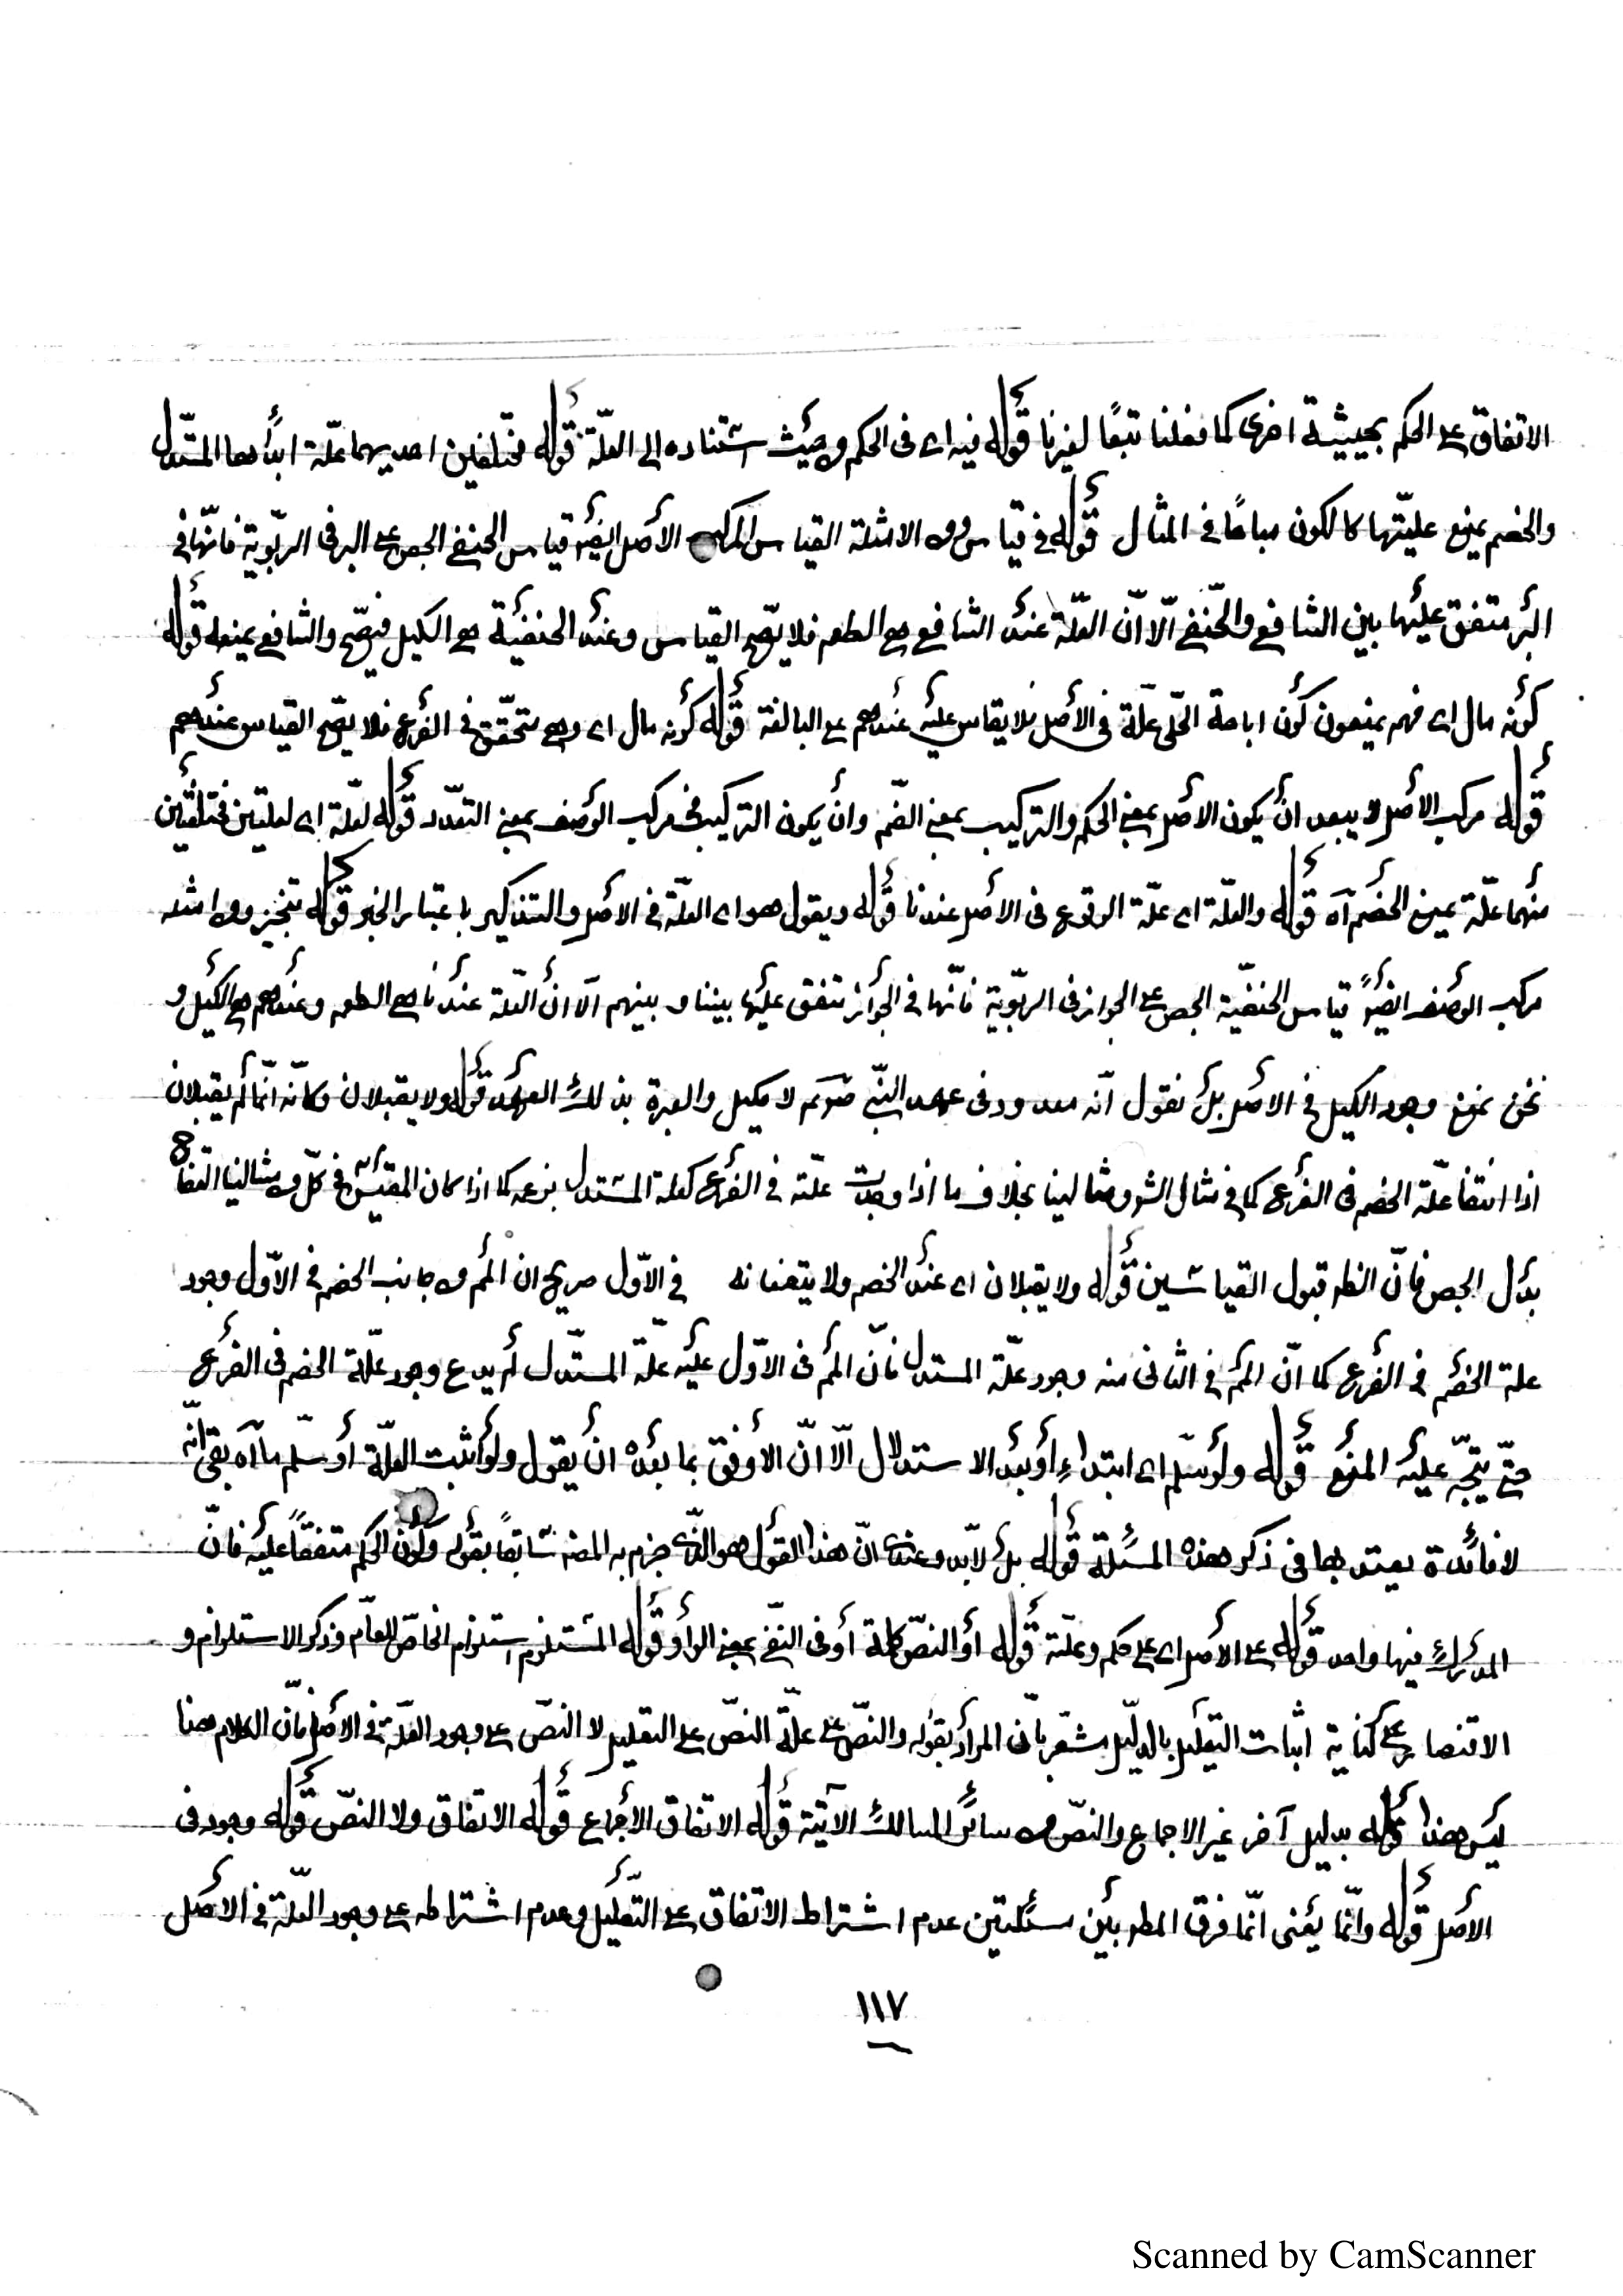 الاتفاق على الحكم بحيثية اخرى كما فعلنا تبعًا لغيرنا قوله فيه اى فى الحكم من حيث استناده الى العلّة قوله مختلفين احديهما علّة ابدأها المستدل
والخصم يمنع عليّتها كالكون مباحًا فى المثال قوله فى قياس من الامثلة القياس المركب الأصل ايضًا قياس الحنفى الجص على البر فى الربّوية فانّها فى
البر متفق عليها بين الشافعى والحنفى الّا انّ العلّة عند الشافعى هى الطعم فلا يصح القياس وعند الحنفية هى الكيل فيصّح والشافعى يمنعه قوله
كونه مال اى فهم يمنعون كون اباحة الحلّى علّة فى الأصل فلا يقاس عليه عندهم على البالغة قوله كونه مال اى وهى متحقّق فى الفرع فلا يصّح القياس عندهم
قوله مركب الأصل لا يبعد ان يكون الاصل بمعنى الحكم والتركيب بمعنى الضّم وان يكون التركيب فى مركب الوصف بمعنى التعدّد قوله لعلّة اى لعلتين مختلفتين
منهما علّة يمنع الخصم آه قوله والعلّة اى علّة الوقوع فى الأصل عندنا قوله ويقول هو اى العلّة فى الاصل والتذكير باعتبار الخبر قوله تنجيز ومن امثلة
مركب الوصف ايضًا قياس الحنفيّة الجص على الجواز فى الربّوية فانّها فى الجواز متفق عليها بيننا وبينهم الّا انّ العلّة عندنا هى الطعم وعندهم هى الكيل و
نحن نمنع وجود الكيل فى الاصل بل نقول انّه معدود فى عهد النبى صوتم لا مكيل والعبرة بذلك العهد قوله ولا يقبلان وكانّه انّما لم يقبلان
اذا انتفا علّة الخصم فى الفرع كما فى مثال الشر ومثالينا بخلاف ما اذا وجدت علّته فى الفرع كعلة المستدل بزعمه كما اذا كان المقيس فى كلّ من مثالينا التفاح
بدل الجص فانّ الظه قبول القياسين قوله ولا يقبلان اى عند الخصم ولا يتعنانه فى الاوّل صريح ان المم من جانب الخصم فى الاوّل وجود
علة الخصم فى الفرع كما انّ المم فى الثانى منه وجود علّة المستدل فانّ المم فى الاوّل عليّه علّة المستدل لم يدع وجود علّة الخصم فى الفرع
حتّى يتجّه عليه المنع قوله ولو سلّم اى ابتداءً او بعد الاستدلال الّا انّ الأوفق بما بعده ان يقول ولو اثبت العلّة او سلّم ما آه بقى انّه
لا فائدة يعتد بها فى ذكر هذه المسئلة قوله بل لابد وعندى انّ هذا القول هو الذى جزم به المصه سابقًا بقوله وكون الحكم متفقًا عليه فانّ
المدرك فيها واحد قوله على الأصل اى على حكم وعلّته قوله او النصّ كلمة أو فى النفى بمعنى الواو قوله المستلزم استلزام الخاصّ للعامّ وذكر الاستلزام و
الاقتصار على كفاية اثبات التعليل بالدليل مشعر بانّ المراد بقوله والنصّ على علّة النصّ على التعليل لا النصّ على وجود العلّة فى الأصل فانّ الكلام هنا
ليس هذا قوله بدليل آخر غير الاجماع والنصّ من سائر المسالك الآتية قوله الاتفاق الأجماع قوله الاتفاق ولا النصّ قوله وجود فى
الأصل قوله وانّما يعنى انّما فرق المطه بين مسئلتين عدم اشتراط الاتفاق على التعليل وعدم اشتراطه على وجود العلّة فى الاصل
١١٧
Scanned by CamScanner